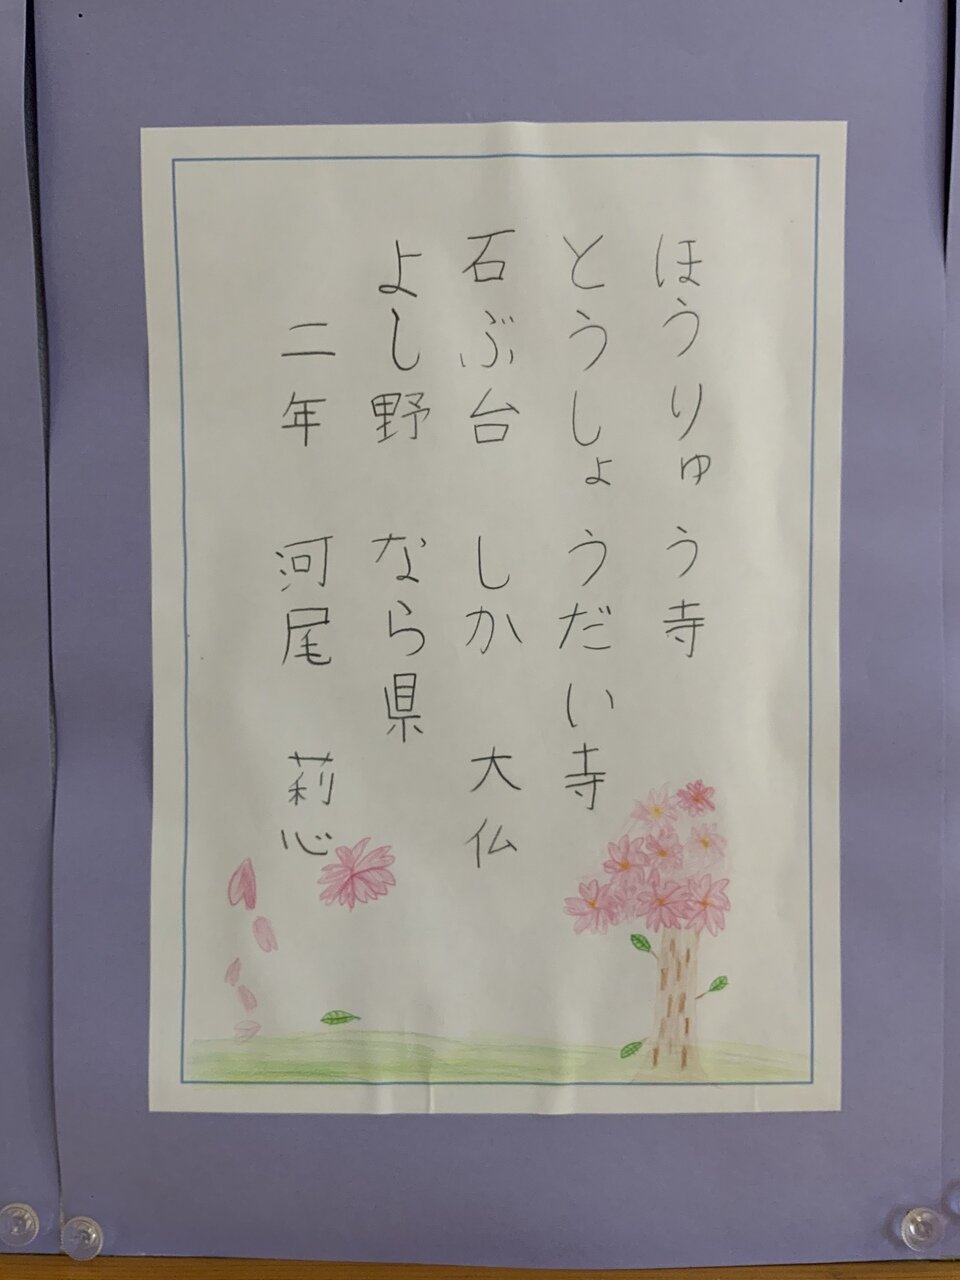 ほうりゅう寺
とうしょうだい寺
石ぶ台 しか 大仏
よし野 なら県
二年 河尾 莉心